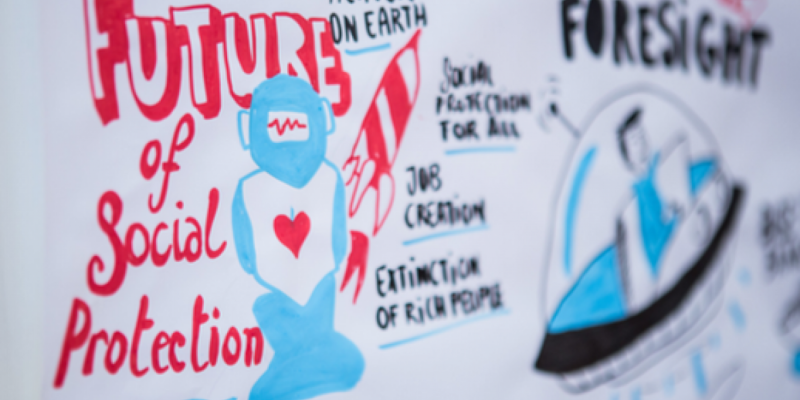 FUTURE
of
Social
Protection
ON EARTH
SOCIAL
PROTECTION
FOR ALL
JOB
CREATION
EXTINCTION
OF RICH PEOPLE
FORESIGHT